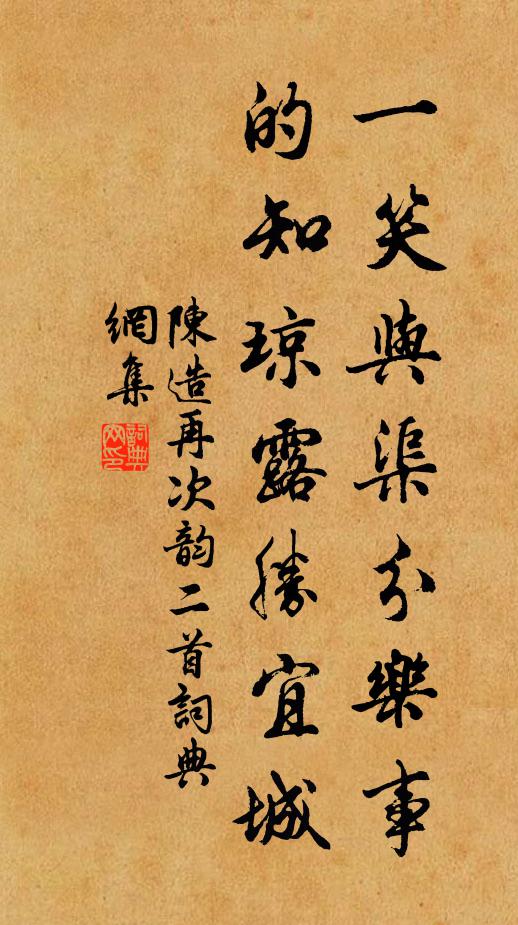 一笑與渠分樂事
的知琼露勝宜城
陳造再次韵二首詞典
網集
詞典網印